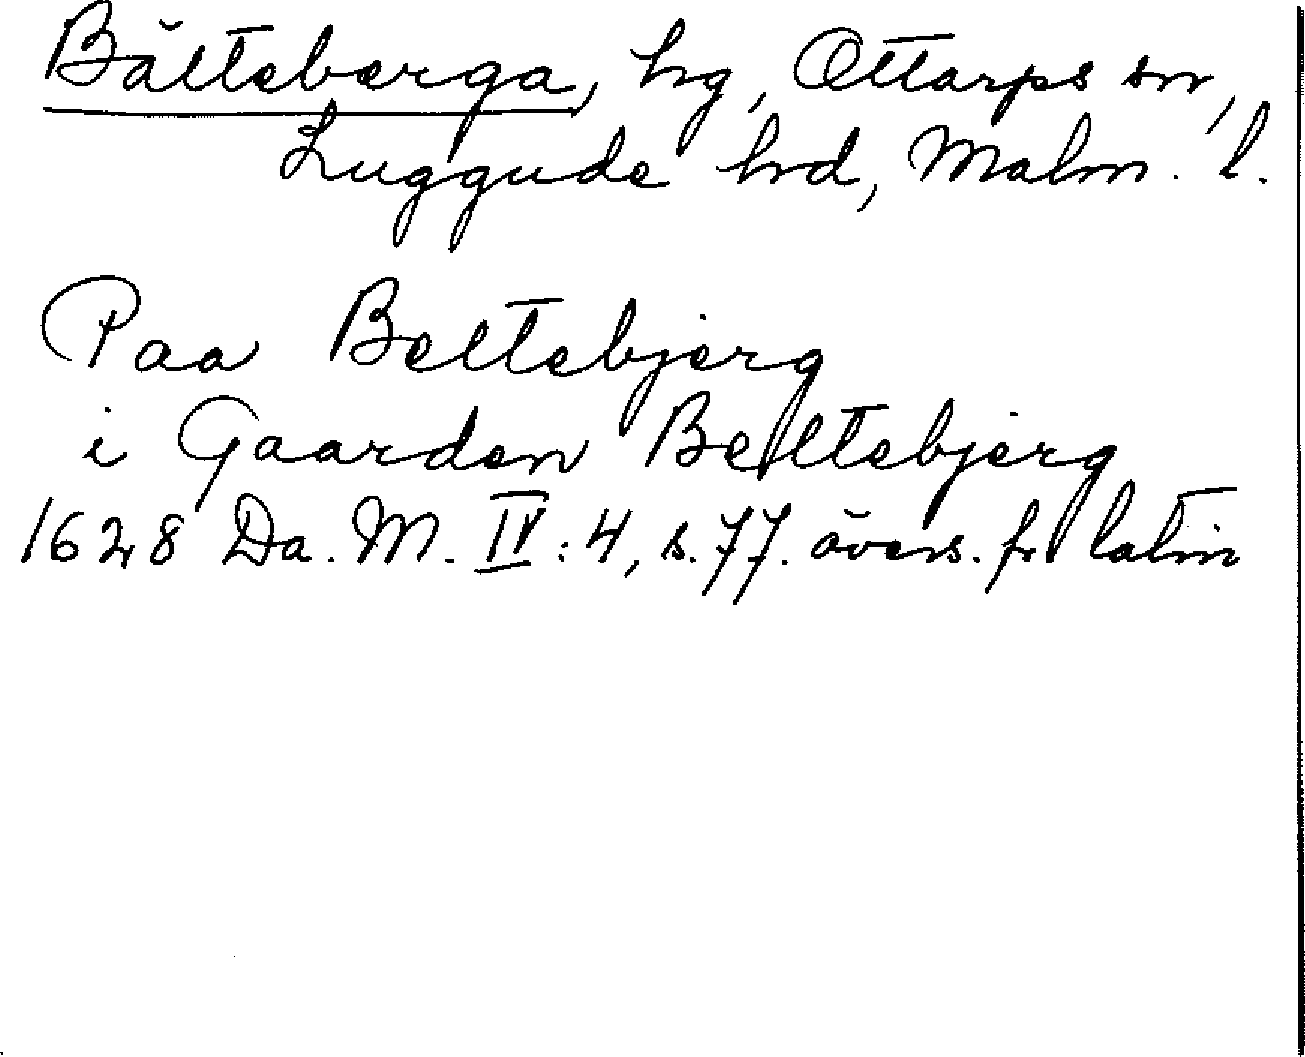 Bälteberga, hg, Ottarps sn,
Luggude hrd, Malm. l.
Paa Beltebjerg
i Gaarden Beltebjerg
1628 Da. M. IV: 4, s. 77. övers. fr latin